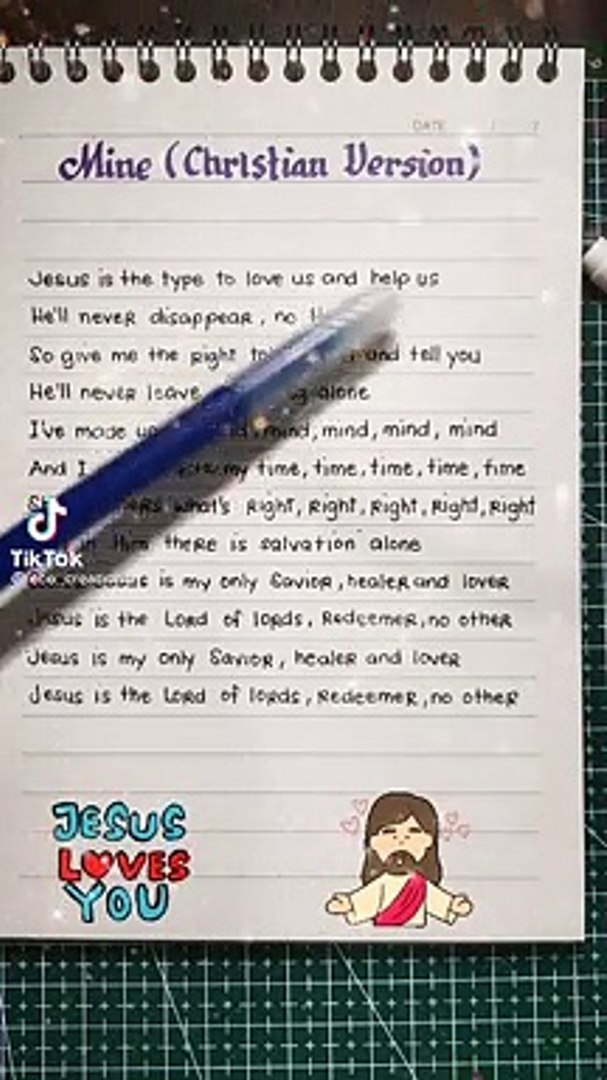 DATE / /
Mine (Christian Version)
Jesus is the type to love us and help us
He'll never disappear, no
So give me the right to and tell you
He'll never leave alone
I've made mind, mind, mind, mind
And I my time, time, time, time, time
what's Right, Right, Right, Right, Right
there is salvation alone
is my only Savior, healer and lover
Jesus is the Lord of lords, Redeemer, no other
Jesus is my only Savior, healer and lover
Jesus is the Lord of lords, Redeemer, no other
TikTok
JESUS
LOVES
YOU